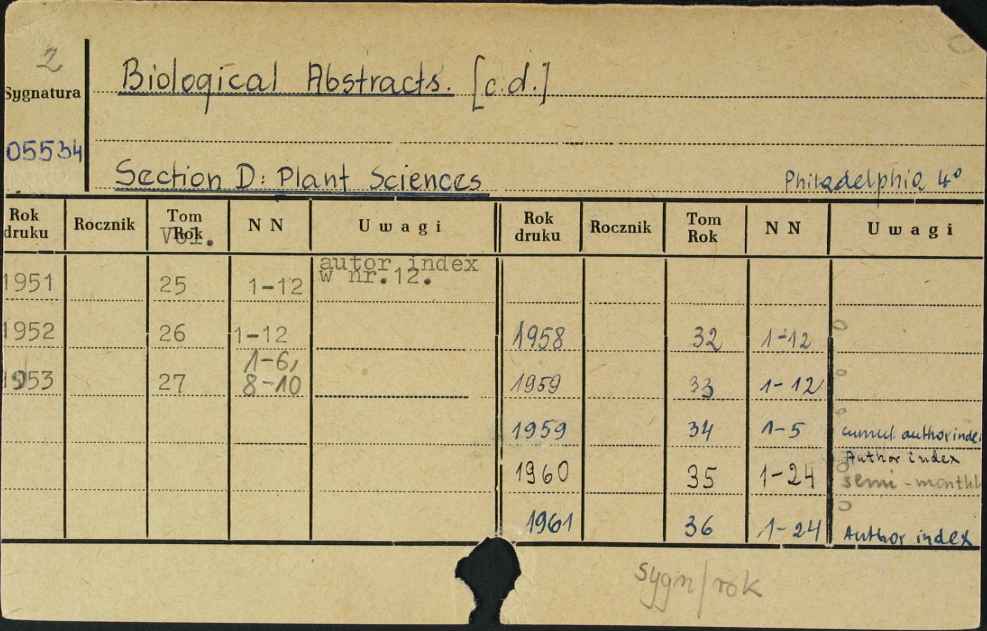 2
Biological Abstracts. [c.d.]
Sygnatura
05534
Section D: Plant Sciences
Philadelphia 4°
Rok druku Rocznik Tom Rok Vol. N N Uwagi Rok druku Rocznik Tom Rok N N Uwagi
1951 25 1-12 autor index w nr.12.
1952 26 1-12 1958 32 1-12
1953 27 1-6, 8-10 1959 33 1-12
1959 34 1-5 cumul. author inde
1960 35 1-24 Author index semi-monthl
1961 36 1-24 Author index
sygn/rok